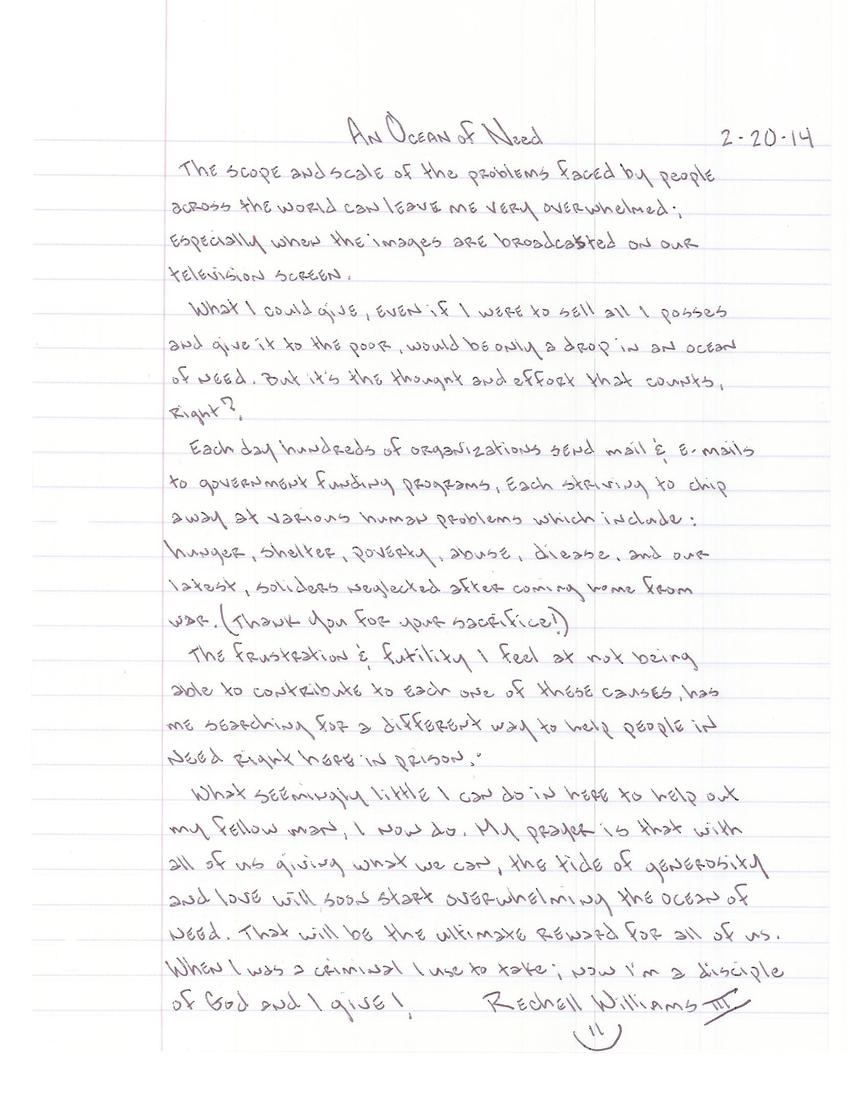 An Ocean of Need 2-20-14
The scope and scale of the problems faced by people
across the world can leave me very overwhelmed;
especially when the images are broadcasted on our
television screen.
What I could give, even if I were to sell all I posses
and give it to the poor, would be only a drop in an ocean
of need. But it's the thought and effort that counts,
right?
Each day hundreds of organizations send mail & e-mails
to government funding programs, each striving to chip
away at various human problems which include:
hunger, shelter, poverty, abuse, diease, and our
latest, soliders neglected after coming home from
war. (Thank you for your sacrifice!)
The frustration & futility I feel at not being
able to contribute to each one of these causes, has
me searching for a different way to help people in
need right here in prison.
What seemingly little I can do in here to help out
my fellow man, I now do. My prayer is that with
all of us giving what we can, the tide of generosity
and love will soon start overwhelming the ocean of
need. That will be the ultimate reward for all of us.
When I was a criminal I use to take; now I'm a disciple
of God and I give! Rechell Williams III